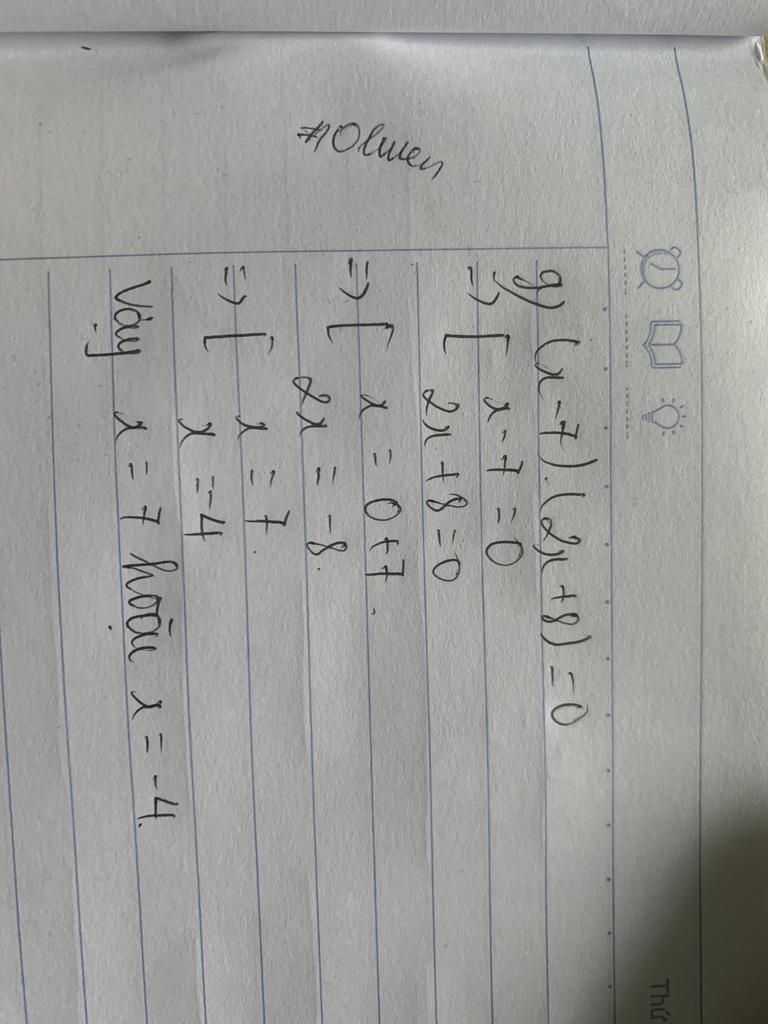 Thứ
#Olmen
g) (x-7).(2x+8)=0
=> [ x-7=0
2x+8=0
=> [ x = 0+7.
2x = -8.
=> [ x = 7.
x = -4
Vậy x = 7 hoặc x = -4.